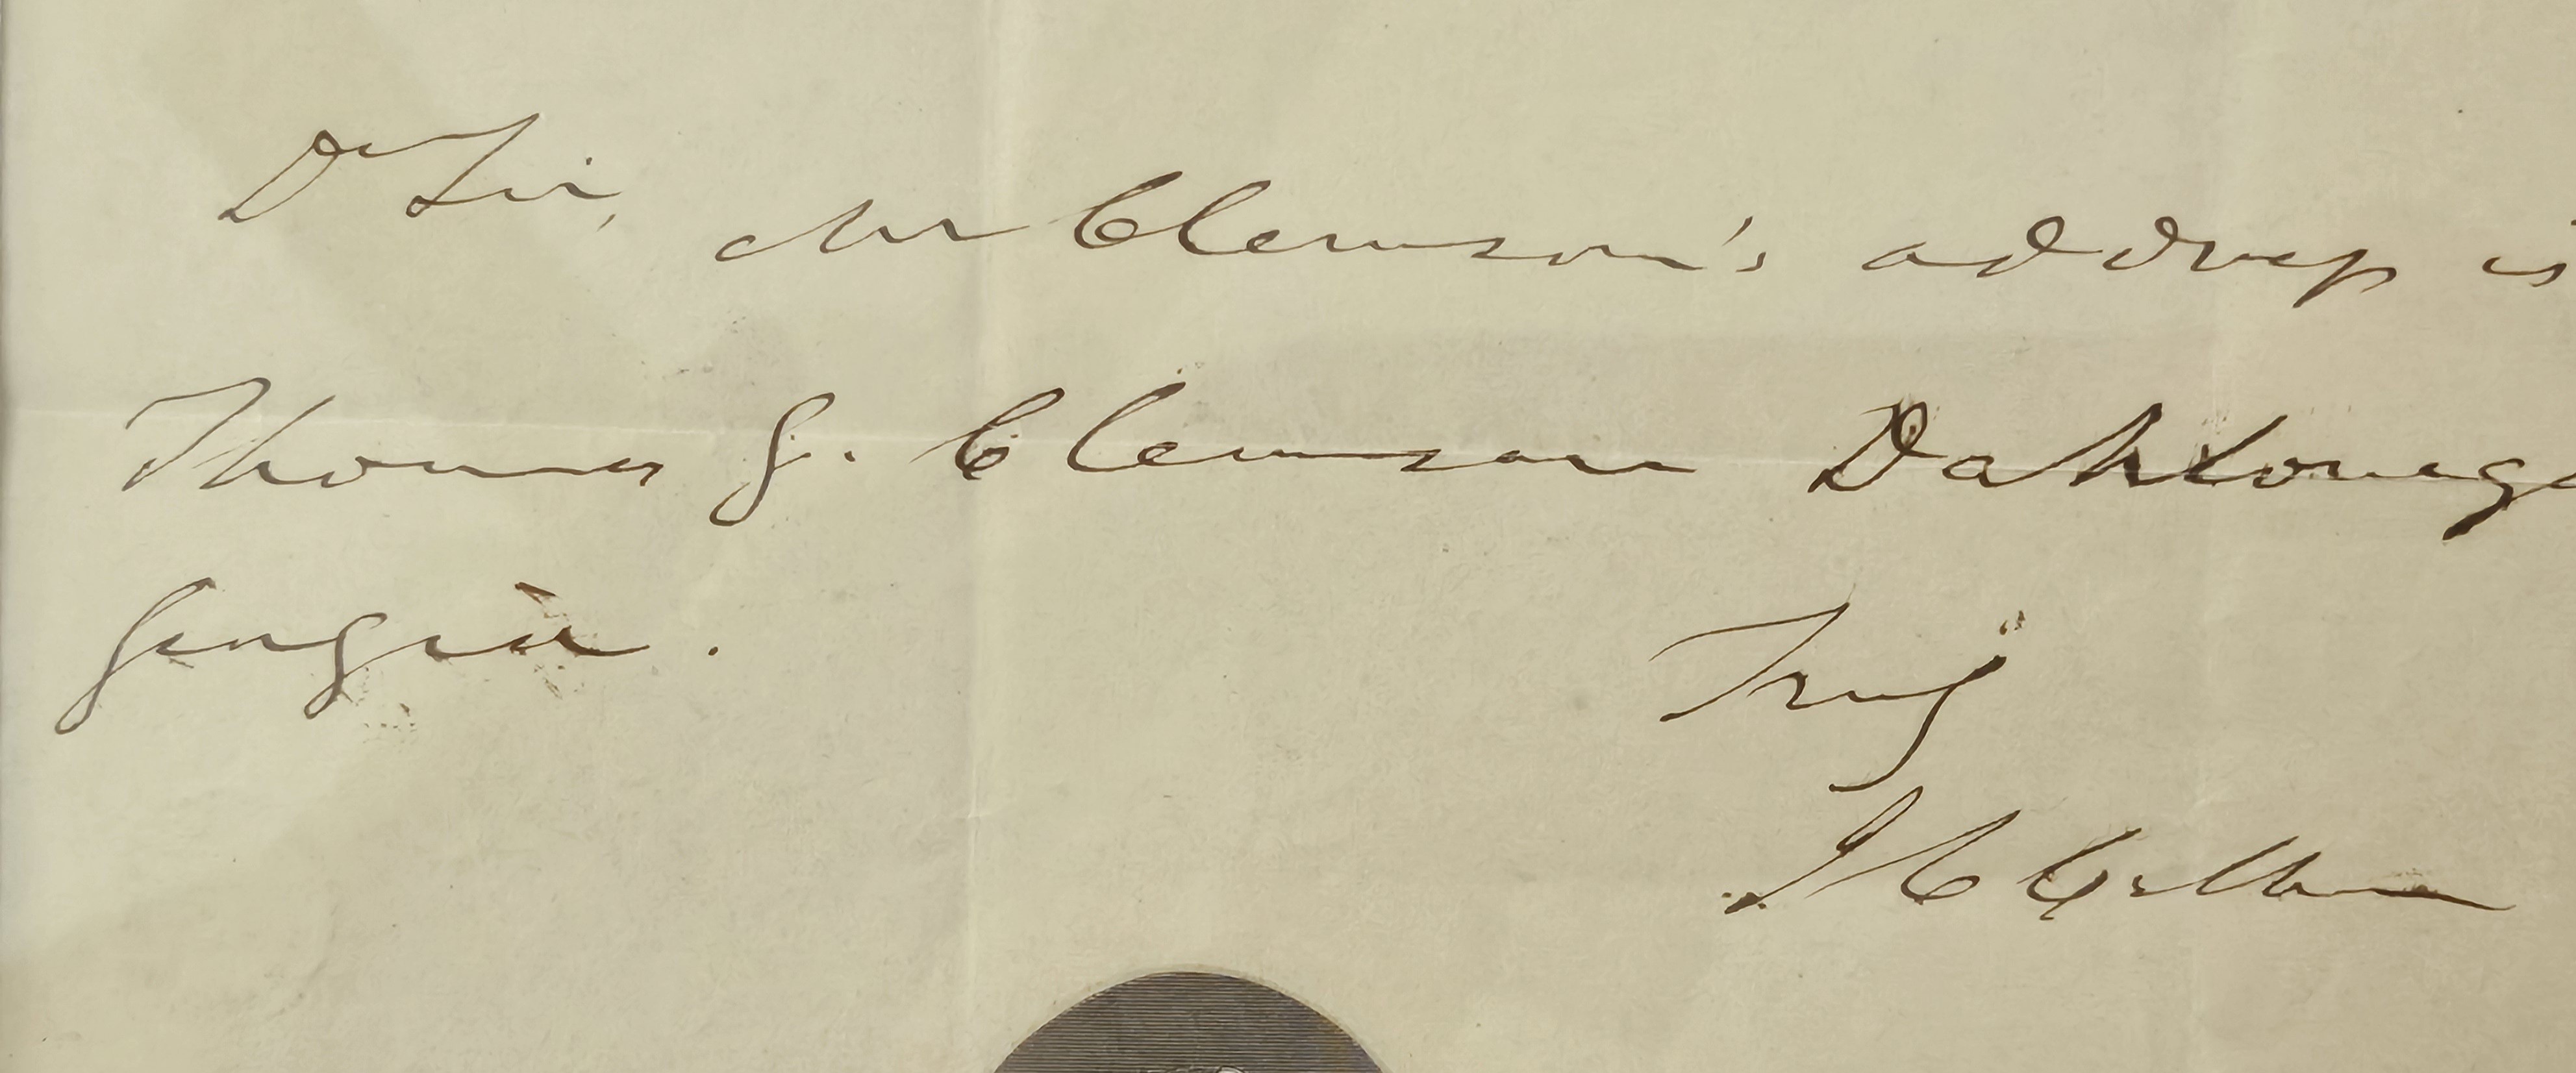 Dr Sir,
Mr Clemson's address is
Thomas G. Clemson Dahlonega
Georgia.
Truly
J C Calhoun